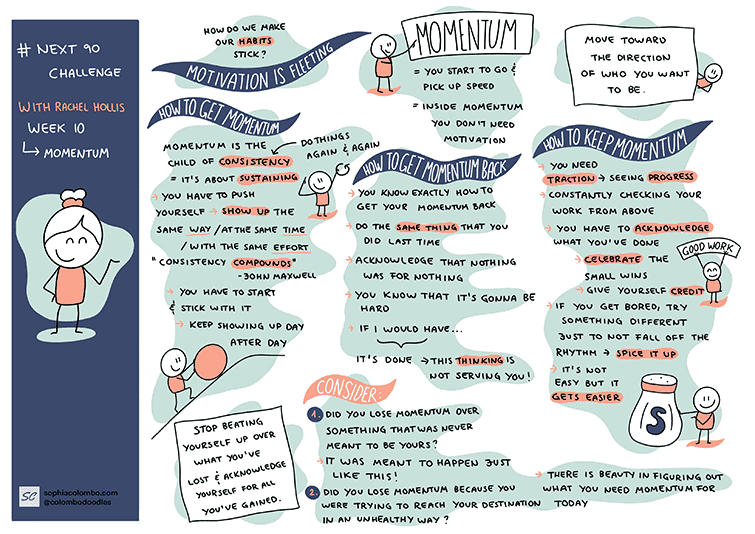 # NEXT 90
CHALLENGE
WITH RACHEL HOLLIS
WEEK 10
↳ MOMENTUM
SC
sophiacolombo.com
@colombodoodles
HOW DO WE MAKE
OUR HABITS
STICK?
MOTIVATION IS FLEETING
MOMENTUM
= YOU START TO GO &
PICK UP SPEED
= INSIDE MOMENTUM
YOU DON'T NEED
MOTIVATION
MOVE TOWARD
THE DIRECTION
OF WHO YOU WANT
TO BE.
HOW TO GET MOMENTUM
MOMENTUM IS THE
CHILD OF CONSISTENCY
← DO THINGS
AGAIN & AGAIN
= IT'S ABOUT SUSTAINING
→ YOU HAVE TO PUSH
YOURSELF → SHOW UP THE
SAME WAY / AT THE SAME TIME
/ WITH THE SAME EFFORT
"CONSISTENCY COMPOUNDS"
-JOHN MAXWELL
→ YOU HAVE TO START
& STICK WITH IT
→ KEEP SHOWING UP DAY
AFTER DAY
HOW TO GET MOMENTUM BACK
→ YOU KNOW EXACTLY HOW TO
GET YOUR MOMENTUM BACK
→ DO THE SAME THING THAT YOU
DID LAST TIME
→ ACKNOWLEDGE THAT NOTHING
WAS FOR NOTHING
→ YOU KNOW THAT IT'S GONNA BE
HARD
→ IF I WOULD HAVE...
IT'S DONE → THIS THINKING IS
NOT SERVING YOU!
HOW TO KEEP MOMENTUM
→ YOU NEED
TRACTION → SEEING PROGRESS
→ CONSTANTLY CHECKING YOUR
WORK FROM ABOVE
→ YOU HAVE TO ACKNOWLEDGE
WHAT YOU'VE DONE
→ CELEBRATE THE
SMALL WINS
→ GIVE YOURSELF CREDIT
GOOD WORK
→ IF YOU GET BORED, TRY
SOMETHING DIFFERENT
JUST TO NOT FALL OFF THE
RHYTHM → SPICE IT UP
→ IT'S NOT
EASY BUT IT
GETS EASIER
S
STOP BEATING
YOURSELF UP OVER
WHAT YOU'VE
LOST & ACKNOWLEDGE
YOURSELF FOR ALL
YOU'VE GAINED.
CONSIDER:
1. DID YOU LOSE MOMENTUM OVER
SOMETHING THAT WAS NEVER
MEANT TO BE YOURS?
→ IT WAS MEANT TO HAPPEN JUST
LIKE THIS!
2. DID YOU LOSE MOMENTUM BECAUSE YOU
WERE TRYING TO REACH YOUR DESTINATION
IN AN UNHEALTHY WAY?
→ THERE IS BEAUTY IN FIGURING OUT
WHAT YOU NEED MOMENTUM FOR
TODAY